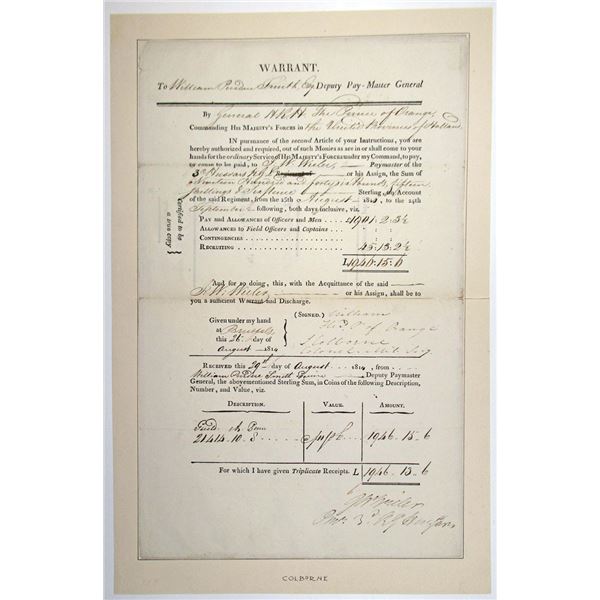 WARRANT.
To William Purdue Smith Esq Deputy Pay-Master General
By General H.R.H. The Prince of Orange
Commanding His Majesty's Forces in the United Provinces of Holland
IN pursuance of the second Article of your Instructions, you are
hereby authorized and required, out of such Monies as are or shall come to your
hands for the ordinary Service of His Majesty's Forces under my Command, to pay,
or cause to be paid, to Paymaster of the
3d Hussars KGL or his Assign, the Sum of
Nineteen Hundred and forty six Pounds, fifteen
Shillings & Sixpence Sterling, on Account
of the said Regiment, from the 25th August 1814, to the 24th
September following, both days inclusive, viz.
certified to be
a true copy
Pay and Allowances of Officers and Men £1901.2.3½
Allowances to Field Officers and Captains
Contingencies
Recruiting 45.13.2½
£1946.15.6
And for so doing, this, with the Acquittance of the said
or his Assign, shall be to
you a sufficient Warrant and Discharge.
Given under my hand
at Brussels
this 26 day of
August 1814
(Signed.) William
Pce of Orange
J Colborne
Colonel
Received this 29th day of August 1814, from
William Purdue Smith Esquire Deputy Paymaster
General, the abovementioned Sterling Sum, in Coins of the following Description,
Number, and Value, viz.
Description. Value. Amount.
21414.10.8 1946.15.6
For which I have given Triplicate Receipts. L 1946.15.6
3d KG Hussars
COLBORNE